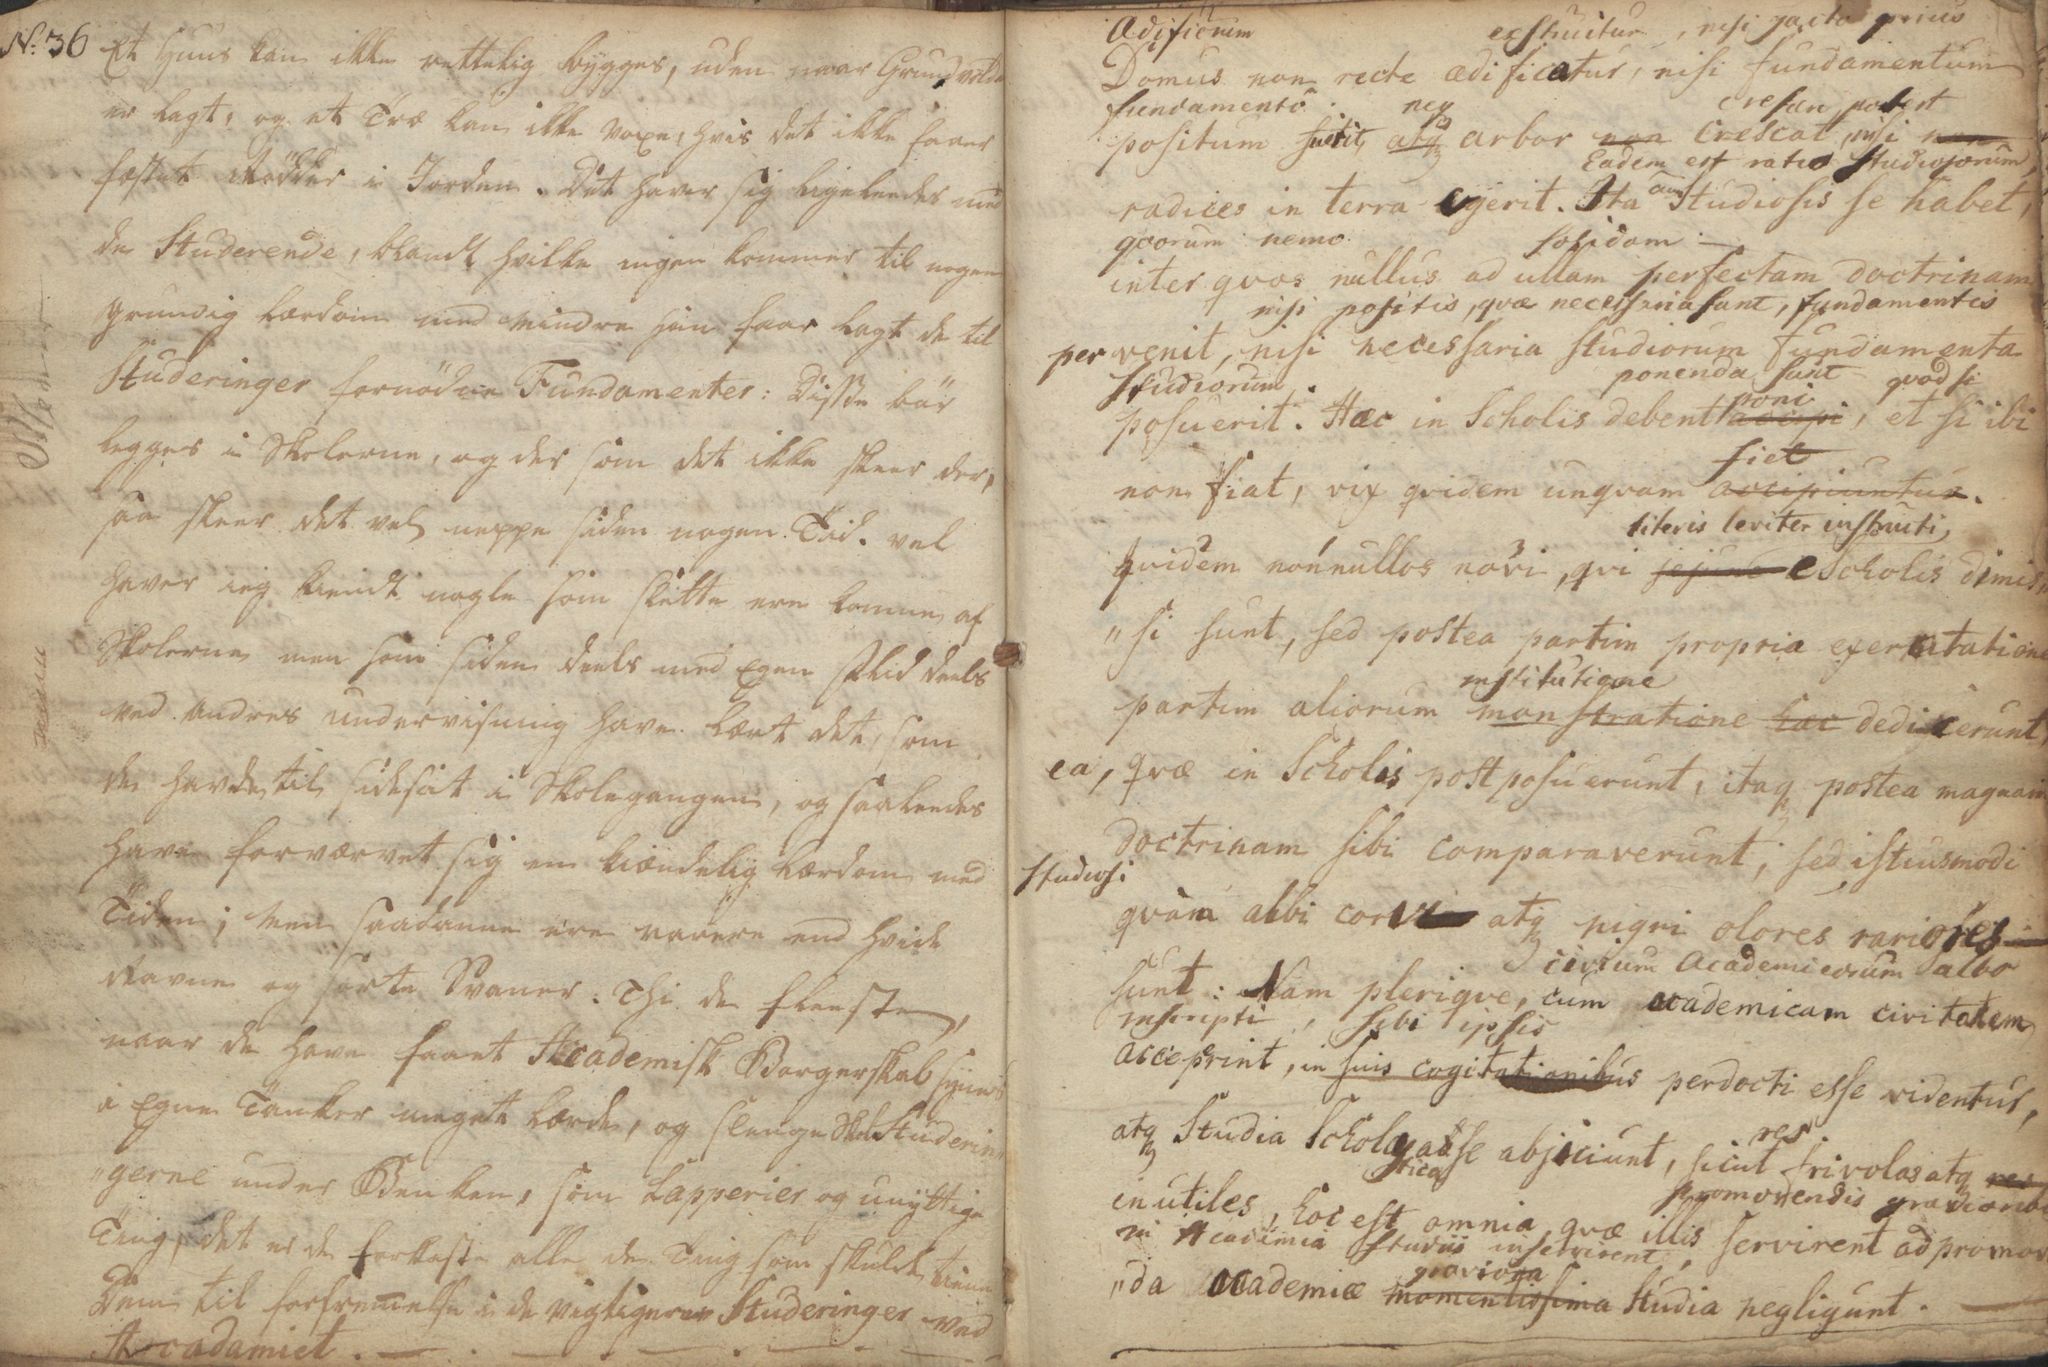 No: 36 Et Huus kan ikke rettelig bygges, uden naar Grundvolden
er lagt, og et Træ kan ikke voxe, hvis det ikke faaer
fæstet Rødder i Jorden. Det haver sig ligeleedes med
de Studerende, blandt hvilke ingen kommer til nogen
grundig Lærdom med mindre han faar lagt de til
Studeringer fornødne Fundamenter: Disse bør
legges i Skolerne, og der som det ikke skeer der,
saa skeer det vel neppe siden nogen Tid. vel
haver ieg kiendt nogle som slette ere komne af
Skolerne men som siden deels med Egen Flid deels
ved Andres underviisning have lært det, som
de havde til sidesat i Skolegangen, og saaleedes
have forværvet sig en kiendelig Lærdom med
Tiden; Men saadanne ere rarere end hvide
Ravne og sorte Svaner. Thi de fleeste,
naar de have faaet Academisk Borgerskab synes
i Egne Tanker meget Lærde, og slenge Skole Studerin¬
"gerne under Benken, som Lapperier og unyttige
Ting, det er de forkaste alle de Ting som skulde tiene
Dem til forfremmelse i de vigtigere Studeringer ved
Academiet.
Ædificium exstruitur, nisi jacto prius
Domus non recte ædificatur, nisi fundamentum
fundamento. neq cresere potest
positum fuerit, atq arbor non crescat, nisi non
Eadem est ratio studiosorum,
radices in terra egerit. Ita cum Studiosis se habet,
qvorum nemo solidam
inter qvos nullus ad ullam perfectam doctrinam
nisi positis, qvæ necessaria sunt, fundamentis
pervenit, nisi necessaria studiorum fundamenta
Studiorum. ponenda sunt qvod si
poni
posuerit. Hæc in Scholis debent accipi, et si ibi
fiet
non fiat, vix qvidem unqvam accipiuntur.
literis leviter instructi,
qvidem nonnullos novi, qvi jejune e Scholis dimis¬
"si sunt, sed postea partim propria exercitatione
institutione
partim aliorum monstratione hæc dedicerunt,
ea, qvæ in Scholis postposuerunt, itaq postea magnam
doctrinam sibi comparaverunt; sed istiusmodi
studiosi
qvam albi corvi atq nigri olores rariores
civium Academicorum albo
sunt: Nam pleriqve, cum academicam civitatem
inscripti, sibi ipsis
acceperint, in suis cogitationibus perdocti esse videntur,
res
atq Studia Scholastica a se abjiciunt, sicut frivolas atq res
promovendis gravioribus
inutiles, hoc est omnia qvæ illis servirent ad promoven
in Academia studiis inservirent,
graviora
"da academiæ momentissima Studia negligunt.